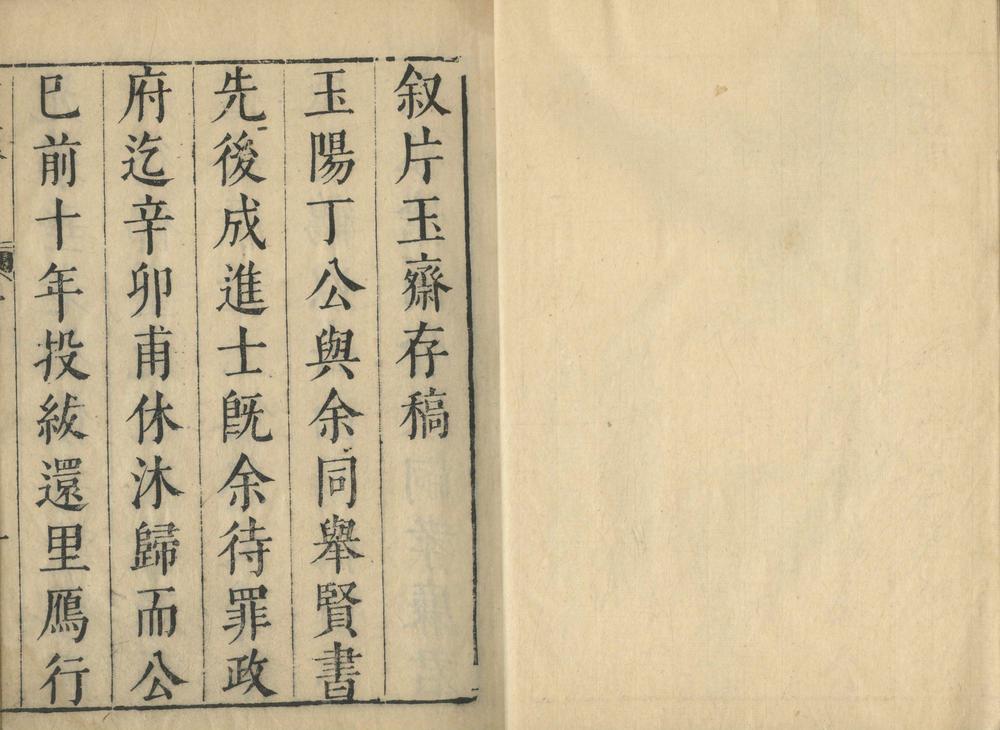 叙片玉齋存稿
玉陽丁公與余同舉賢書
先後成進士既余待罪政
府迄辛卯甫休沐歸而公
巳前十年投紱還里鴈行